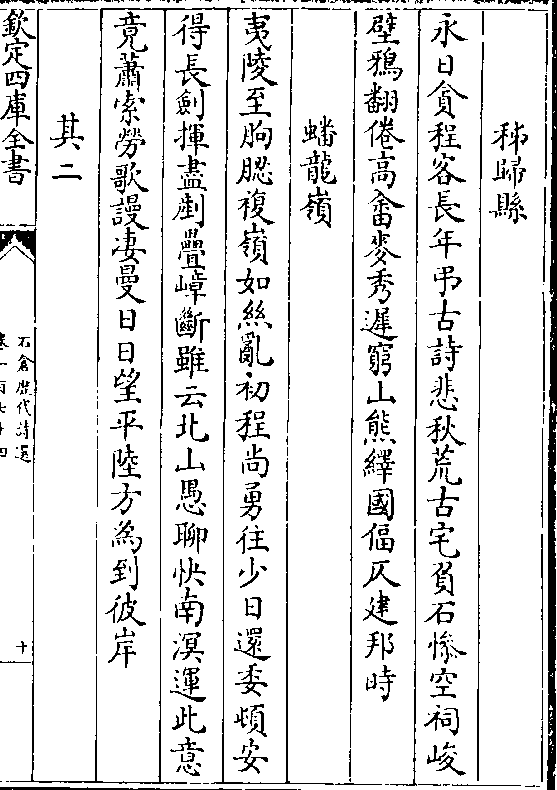 秭歸縣
永日貪程客長年弔古詩悲秋荒古宅負石慘空祠峻
壁鴉翻倦高畬麥秀遲窮山熊繹國偪仄建邦時
蟠龍嶺
夷陵至朐䏰複嶺如絲亂初程尚勇往少日還委頓安
得長劍揮盡劃疊嶂斷雖云北山愚聊快南溟運此意
竟蕭索勞歌謾凄曼日日望平陸方為到彼岸
其二
欽定四庫全書
石倉歷代詩選
卷一百七十四
十